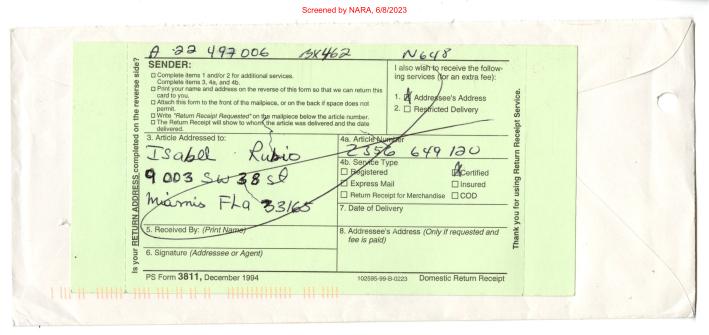 Screened by NARA, 6/8/2023
A 22 497 006 BX462 N648
Is your RETURN ADDRESS completed on the reverse side?
SENDER:
Complete items 1 and/or 2 for additional services.
Complete items 3, 4a, and 4b.
Print your name and address on the reverse of this form so that we can return this
card to you.
Attach this form to the front of the mailpiece, or on the back if space does not
permit.
Write "Return Receipt Requested" on the mailpiece below the article number.
The Return Receipt will show to whom the article was delivered and the date
delivered.
I also wish to receive the follow-
ing services (for an extra fee):
1. Addressee's Address
2. Restricted Delivery
3. Article Addressed to:
Isabell Rubio
9003 SW 38 st
Miamis FLa 33165
4a. Article Number
2356 649 120
4b. Service Type
Registered Certified
Express Mail Insured
Return Receipt for Merchandise COD
7. Date of Delivery
5. Received By: (Print Name)
8. Addressee's Address (Only if requested and
fee is paid)
6. Signature (Addressee or Agent)
PS Form 3811, December 1994 102595-99-B-0223 Domestic Return Receipt
Thank you for using Return Receipt Service.